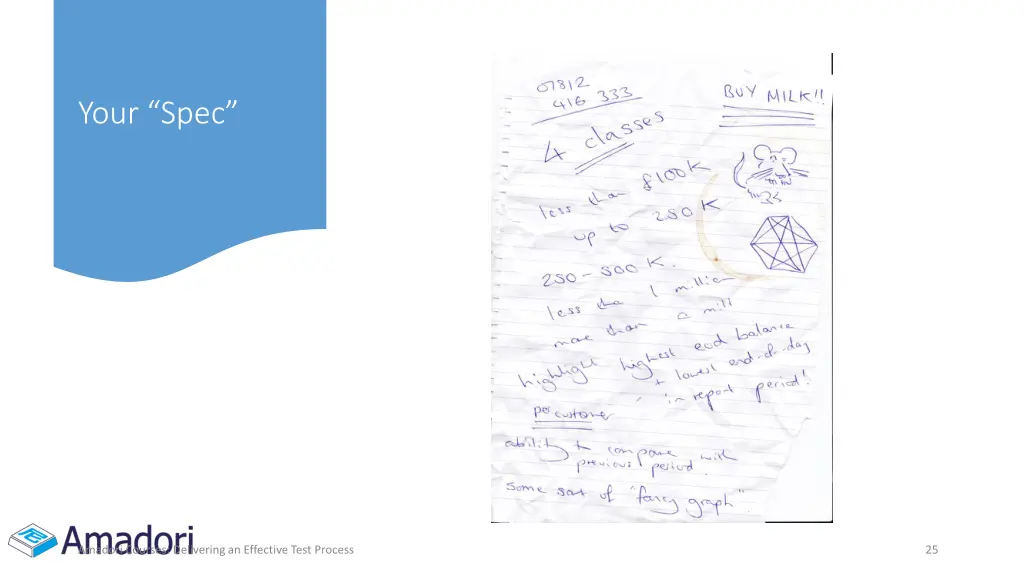 Your “Spec”
07812
416 333
BUY MILK!!
4 classes
less than £100K
up to 250K
250 - 500K.
less than 1 million
more than a mill
highlight highest eod balance
+ lowest end-of-day
" in report period!
per customer
ability to compare with
previous period.
some sort of "fancy graph".
Amadori
Amadori Courses: Delivering an Effective Test Process
25